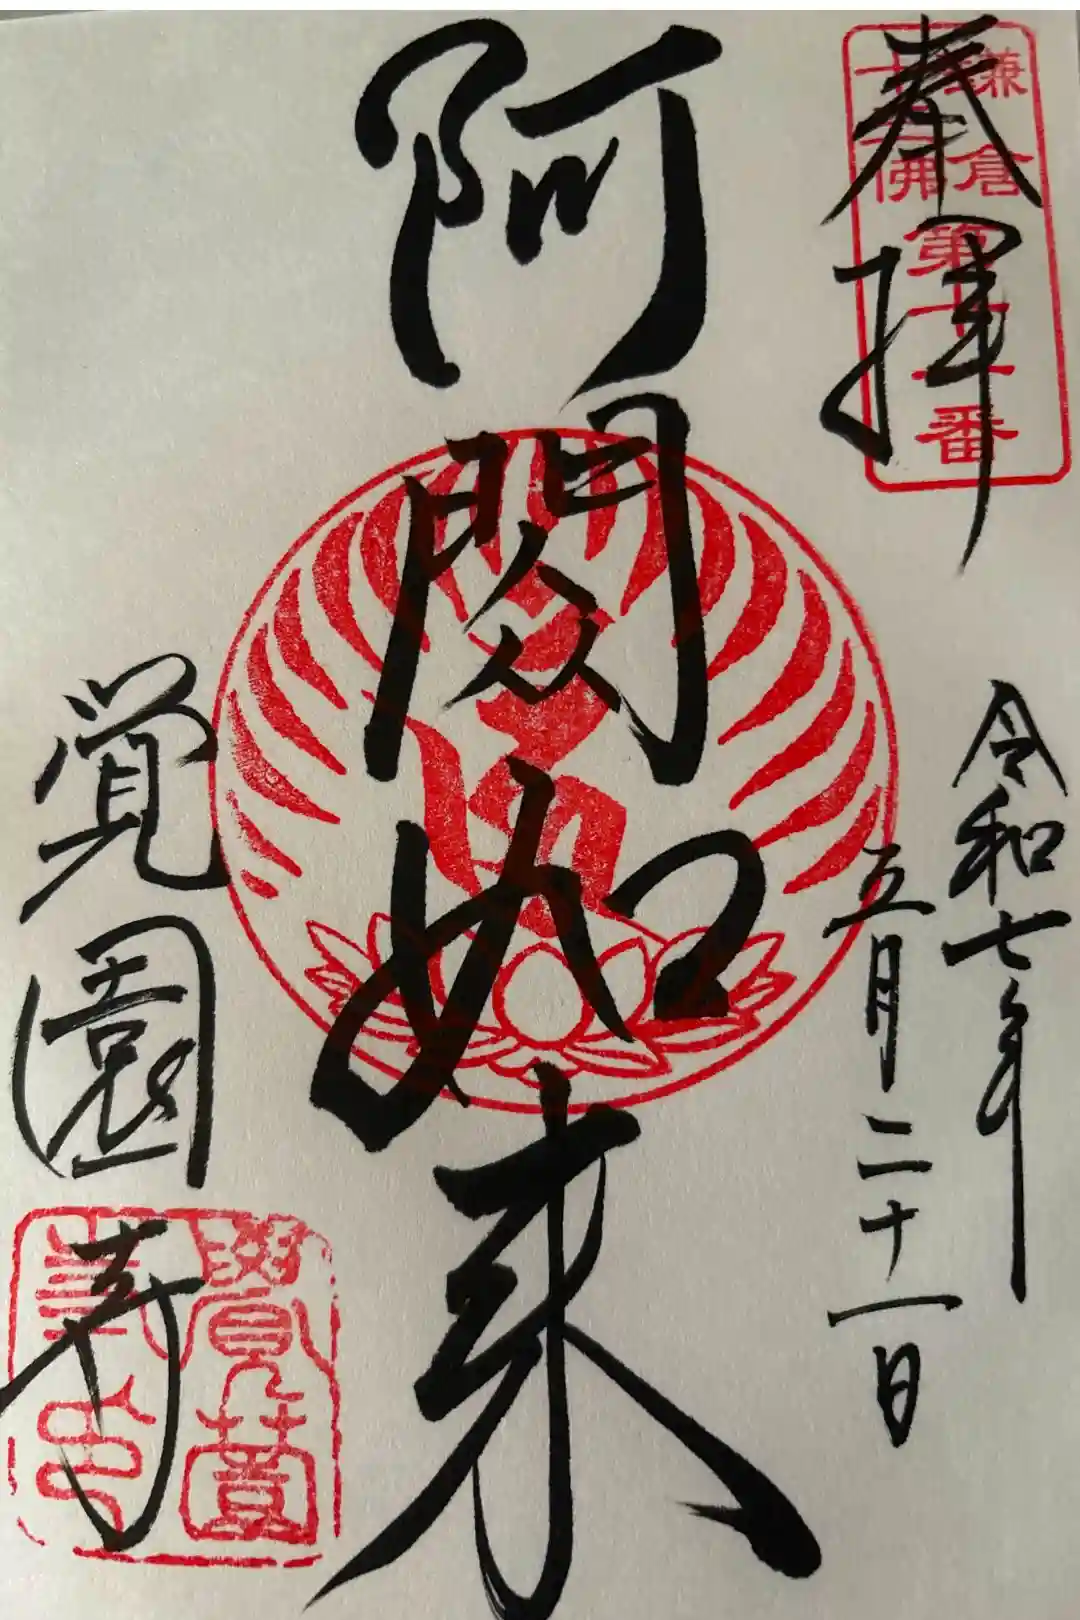 奉拝
鎌倉
十三佛
第十一番
令和七年
五月二十一日
阿閦如来
覚園寺
覺薗
寺印